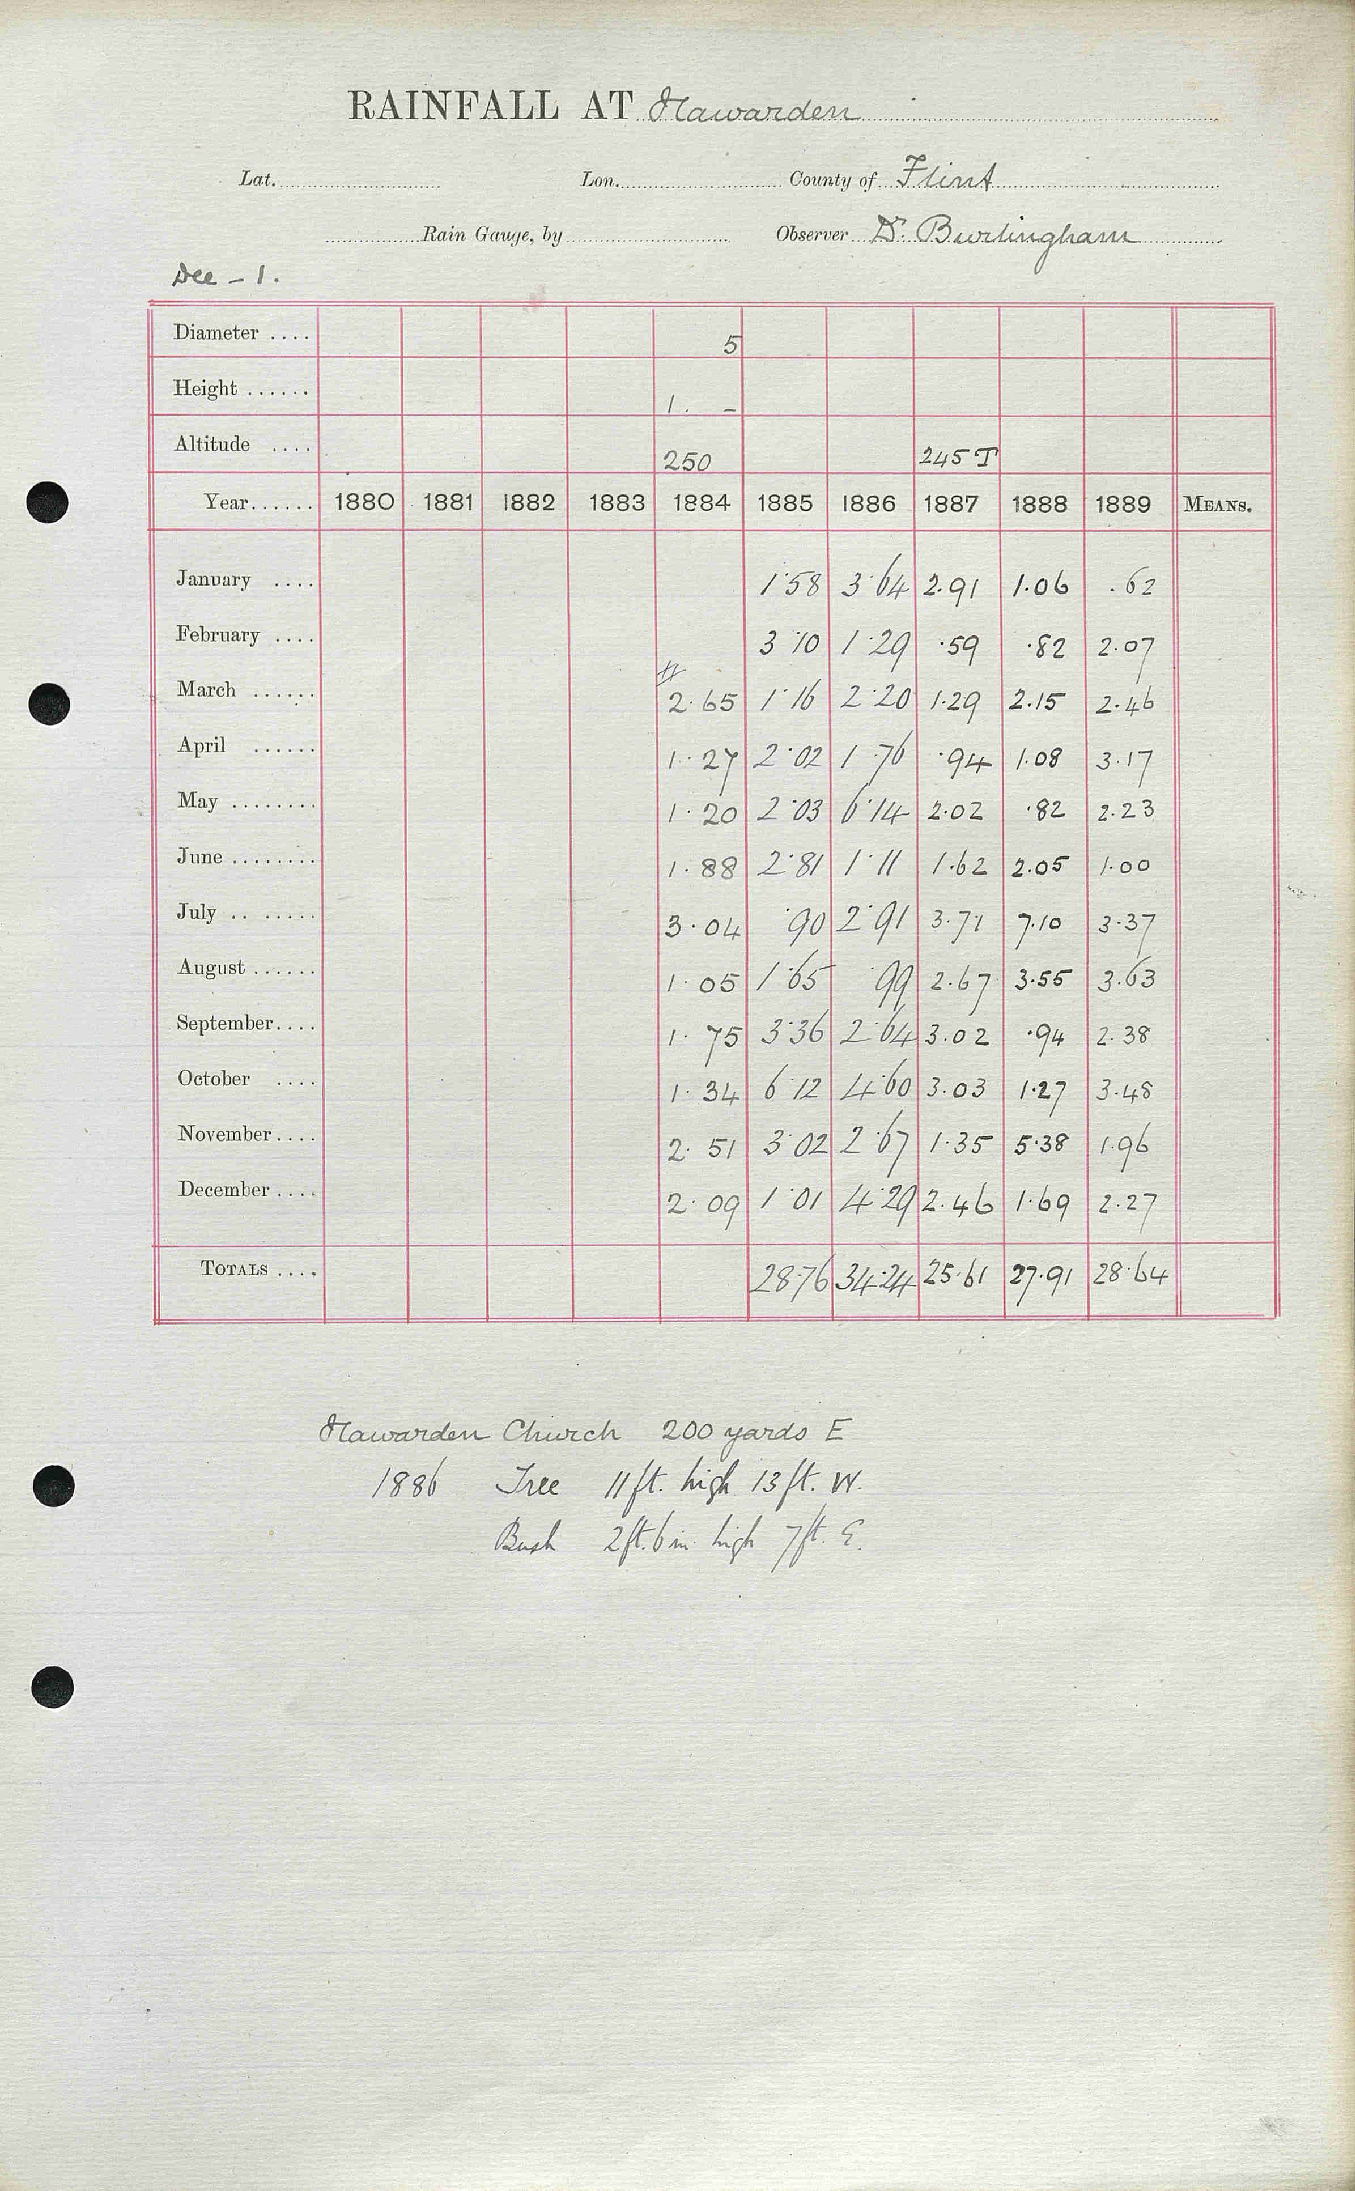 RAINFALL AT Hawarden
Lat. Lon. County of Flint
Rain Gauge, by Observer Dr. Burlingham
Dee - 1.
Diameter .... 5
Height ...... 1. -
Altitude .... 250 245 T
Year...... 1880 1881 1882 1883 1884 1885 1886 1887 1888 1889 MEANS.
January .... 1.58 3.64 2.91 1.06 .62
February .... 3.10 1.29 .59 .82 2.07
March ...... 2.65 1.16 2.20 1.29 2.15 2.46
April ...... 1.27 2.02 1.76 .94 1.08 3.17
May ........ 1.20 2.03 6.14 2.02 .82 2.23
June ........ 1.88 2.81 1.11 1.62 2.05 1.00
July .. ...... 3.04 .90 2.91 3.71 7.10 3.37
August ...... 1.05 1.65 .99 2.67 3.55 3.63
September.... 1.75 3.36 2.64 3.02 .94 2.38
October .... 1.34 6.12 4.60 3.03 1.27 3.48
November.... 2.51 3.02 2.67 1.35 5.38 1.96
December.... 2.09 1.01 4.29 2.46 1.69 2.27
TOTALS .... 28.76 34.24 25.61 27.91 28.64
Hawarden Church 200 yards E
1886 Tree 11 ft. high 13 ft. W.
Bush 2 ft. 6 in high 7 ft. E.